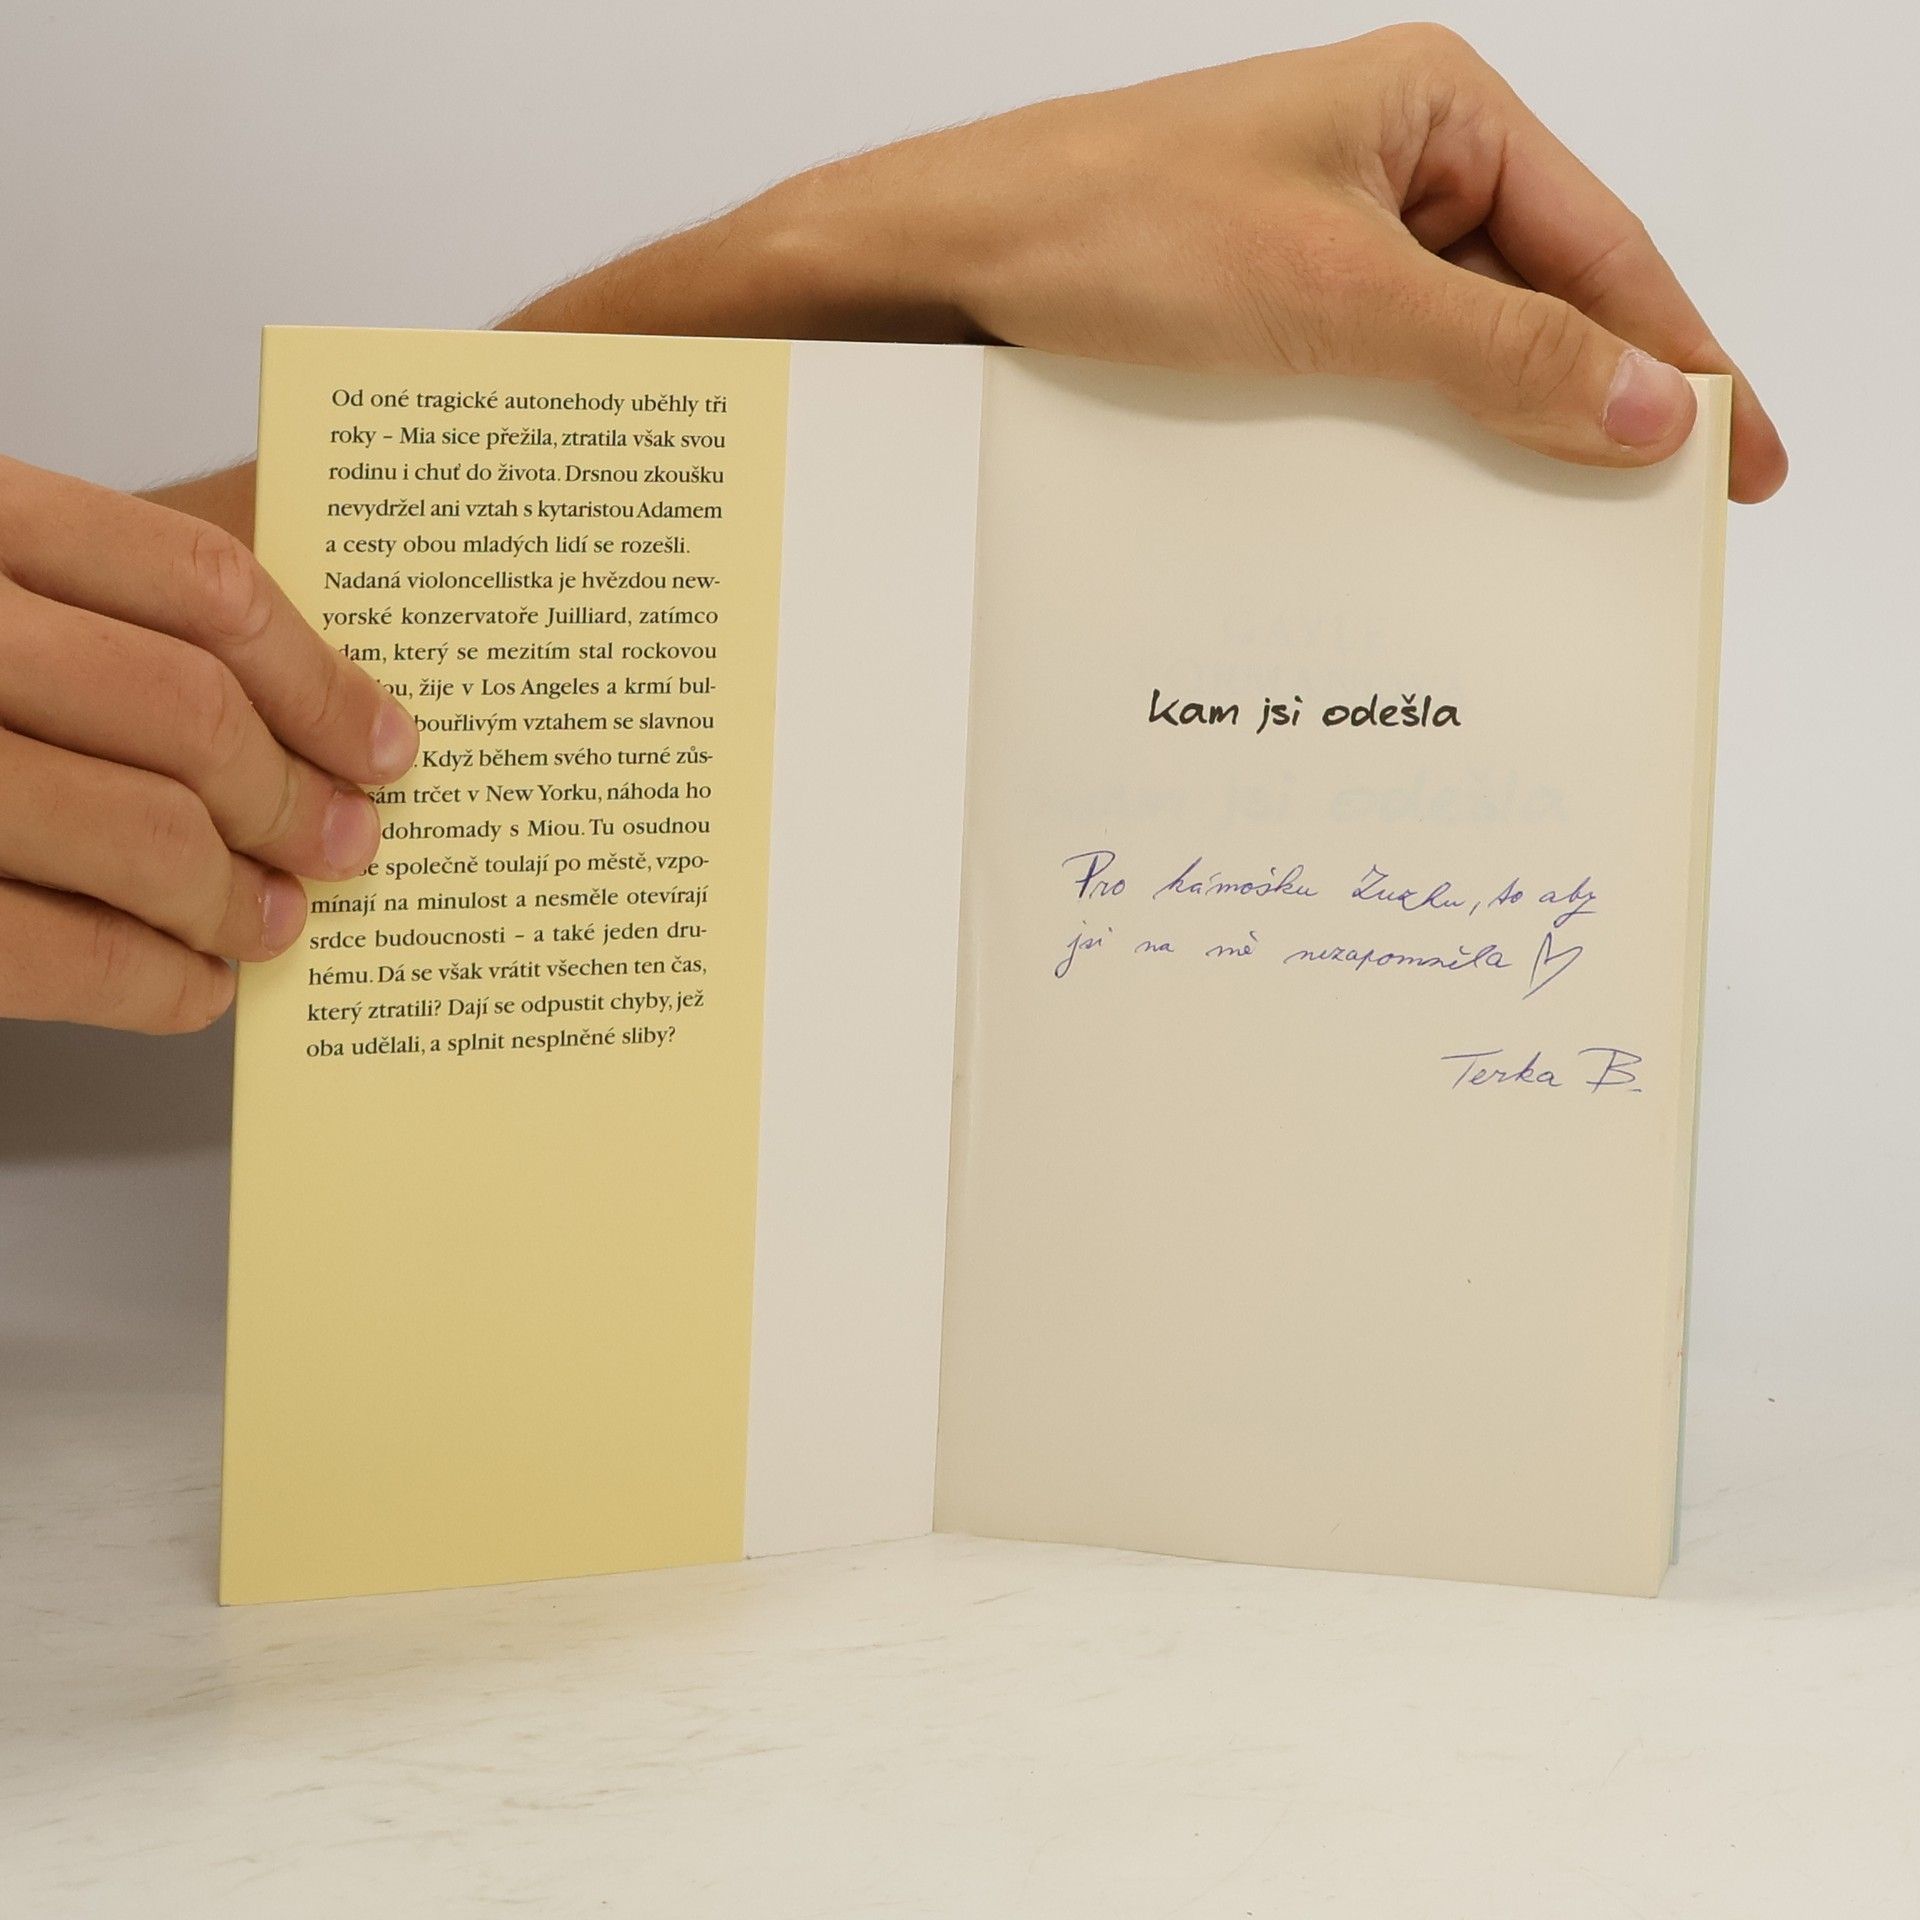 Od oné tragické autonehody uběhly tři
roky – Mia sice přežila, ztratila však svou
rodinu i chuť do života. Drsnou zkoušku
nevydržel ani vztah s kytaristou Adamem
a cesty obou mladých lidí se rozešli.
Nadaná violoncellistka je hvězdou new-
yorské konzervatoře Juilliard, zatímco
který se mezitím stal rockovou
žije v Los Angeles a krmí bul-
bouřlivým vztahem se slavnou
Když během svého turné zůs-
sám trčet v New Yorku, náhoda ho
dohromady s Miou. Tu osudnou
se společně toulají po městě, vzpo-
mínají na minulost a nesměle otevírají
srdce budoucnosti – a také jeden dru-
hému. Dá se však vrátit všechen ten čas,
který ztratili? Dají se odpustit chyby, jež
oba udělali, a splnit nesplněné sliby?
kam jsi odešla
Pro kámošku Zuzku, to aby
jsi na mě nezapomněla
Terka B.